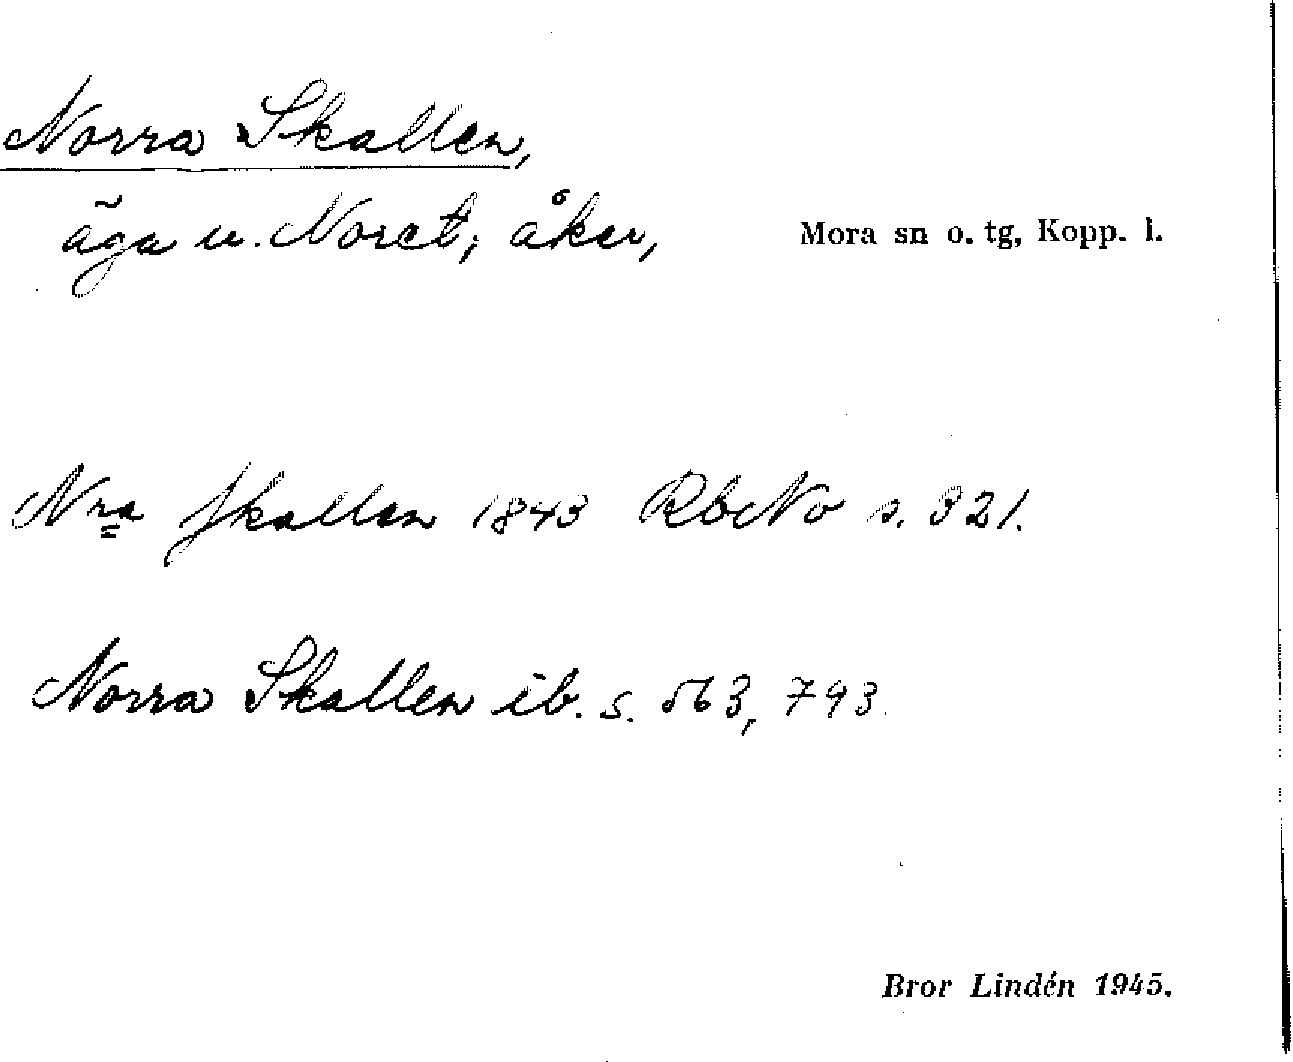 Norra Skallen,
äga u. Noret; åker, Mora sn o. tg, Kopp. l.
Nra Skallen 1843 RbNo s. 321.
Norra Skallen ib. s. 563, 793.
Bror Lindén 1945.